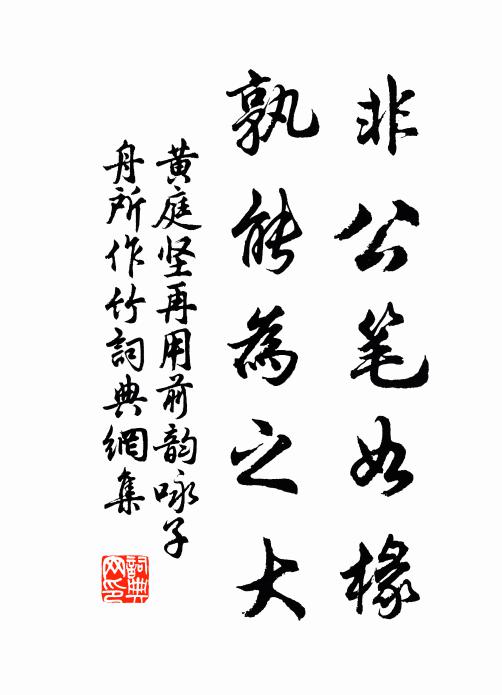 非公笔如椽
孰能為之大
黄庭坚再用前韵咏子
舟所作竹詞典網集
詞典网印